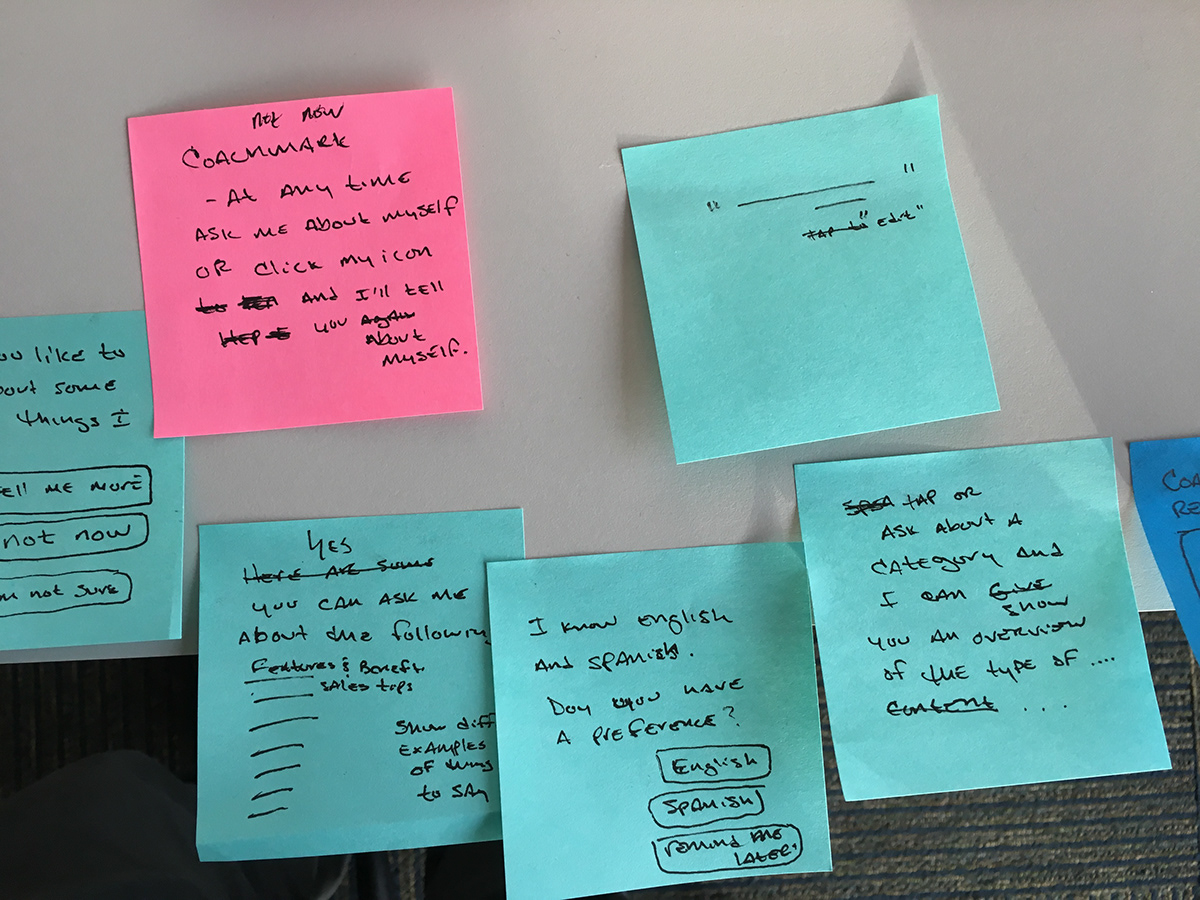 not now
COACHMARK
- At Any time
ASK ME About MySElf
OR Click My icon
And I'll tell
you Again
About
MySElf.
"
"
TAP to "Edit"
ou like to
bout some
things I
ell ME MORE
not now
m not sure
YES
Here Are Some
you CAN ASK ME
About the following
Features & Benefit
SAles tops
Show diff
ExAmplEs
of thing
to SAy
I know English
And SPANish.
Doy you HAVE
A preference?
English
SPANish
remind me
LATER.
tAP OR
ASK About A
CAtEgory And
I CAN GIVE
show
you An overview
of the type of ....
Content ....
COA
RE